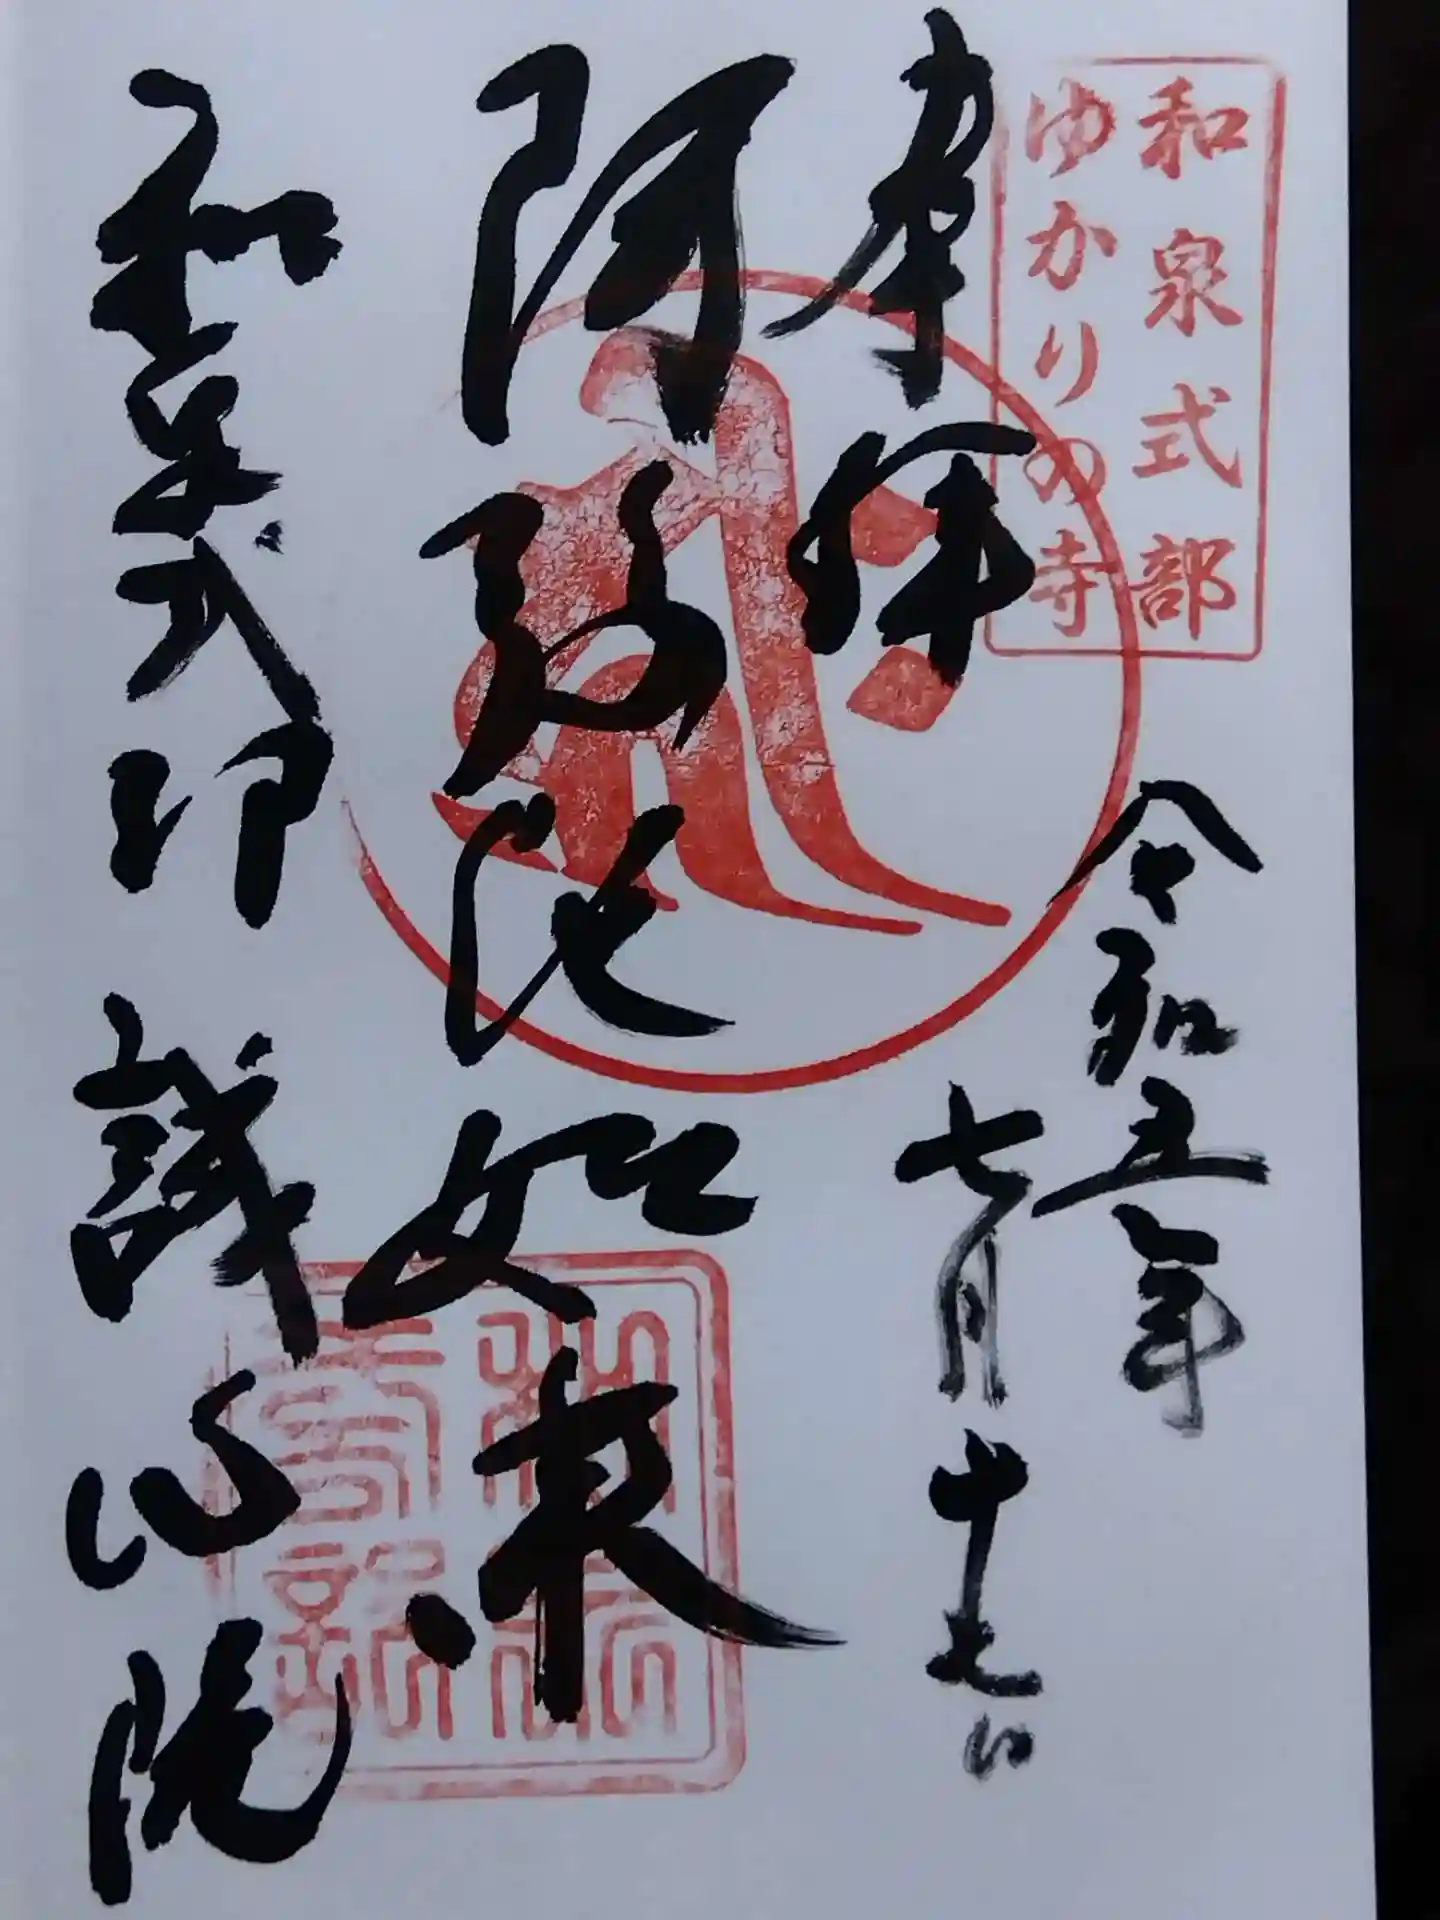 和泉式部
ゆかりの寺
奉拝
令和五年
七月十七日
阿弥陀如来
和泉式部 誠心院